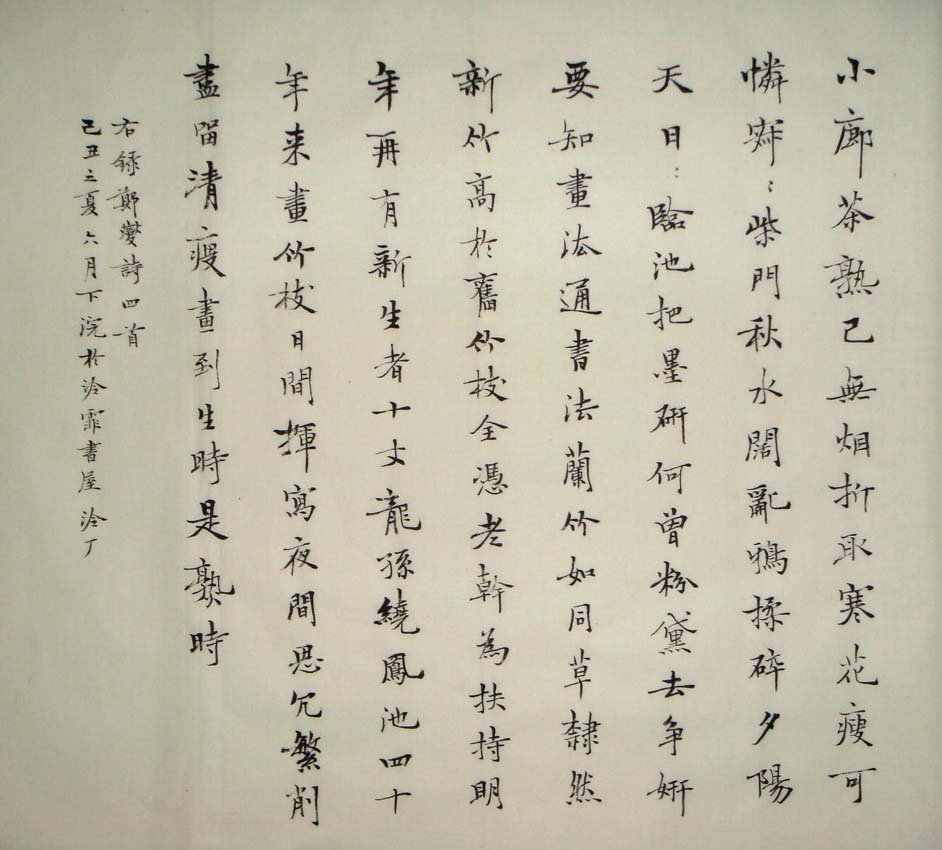 小廊茶熟已無烟折取寒花瘦可
憐寂〻柴門秋水闊亂鴉揉碎夕陽
天日〻臨池把墨研何曾粉黛去争妍
要知畫法通書法蘭竹如同草隸然
新竹高於舊竹枝全憑老幹為扶持明
年再有新生者十丈龍孫繞鳳池四十
年来畫竹枝日間揮寫夜間思冗繁削
盡留清瘦畫到生時是熟時
右録鄭燮詩四首
己丑之夏六月下浣於泠霏書屋泠丁